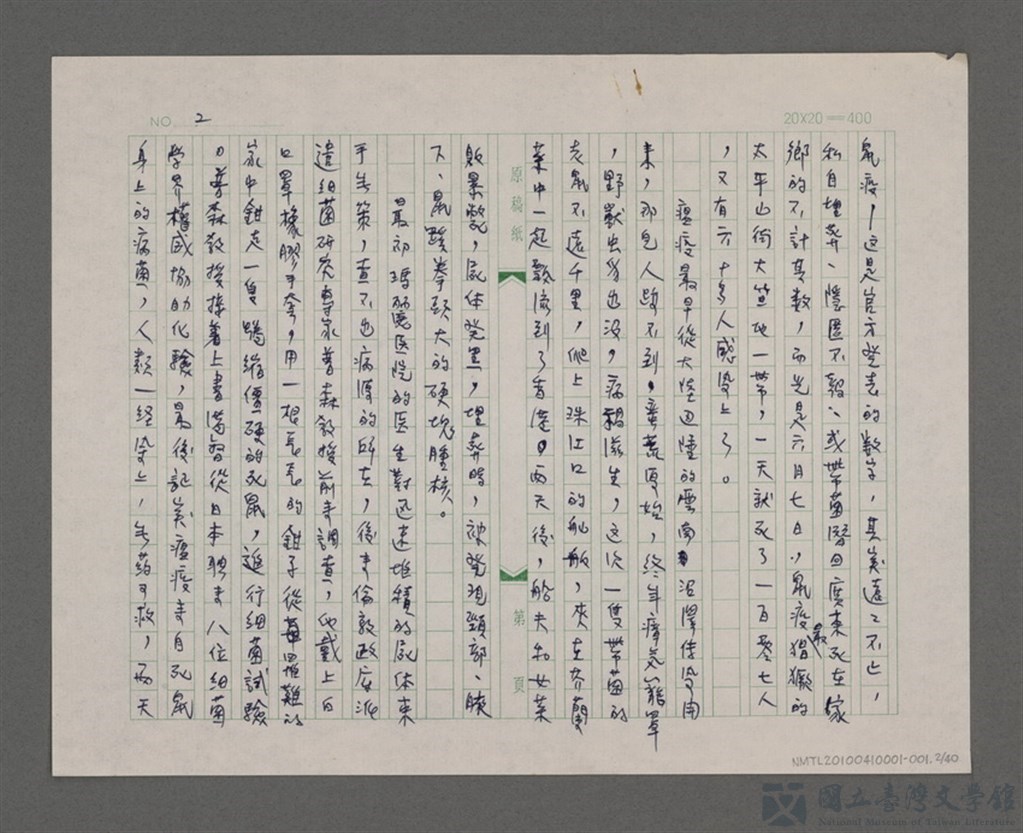 NO 2
20X20＝400
鼠疫，這是官方登表的数字，其實遠遠不止，
私自埋葬、隱匿不報、或帶菌潛回廣東死在家
鄉的不計其数，而光是六月七日，鼠疫最猖獗的
太平山街大笪地一帶，一天就死了一百零七人
，又有六十多人感染上了。
瘟疫最早從大陸边陲的雲南沼澤傳染開
來，那兒人跡不到，蠻荒原始，終年瘴氣籠罩
，野獸出沒，病禍滋生，這次一隻帶菌的
老鼠不遠千里，爬上珠江口的舢舨，夾在芥蘭
菜中一起飄流到了香港。兩天後，船夫和女菜
販暴斃，屍体發黑，埋葬時，被發現頸部、腋
下、鼠蹊拳頭大的硬塊腫核。
最初瑪麗医院的医生對迅速堆積的屍体束
手無策，查不出病源的所在，後來倫敦政府派
遣細菌研究專家普森教授前來調查，他戴上白
口罩橡膠手套，用一根長長的鉗子從罹難的
家中鉗走一隻蜷縮僵硬的死鼠，進行細菌試驗
。普森教授接著上書港督從日本聘來八位細菌
學界權威協助化驗，最後証實瘟疫來自死鼠
身上的病菌，人類一經染上，無药可救，兩天
原稿紙
第 頁
NMTL20100410001-001.2/40
國立臺灣文學館
National Museum of Taiwan Literature